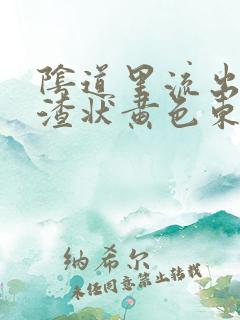 阴道里流出
渣状黄色东
纳希尔
未经同意禁止转载